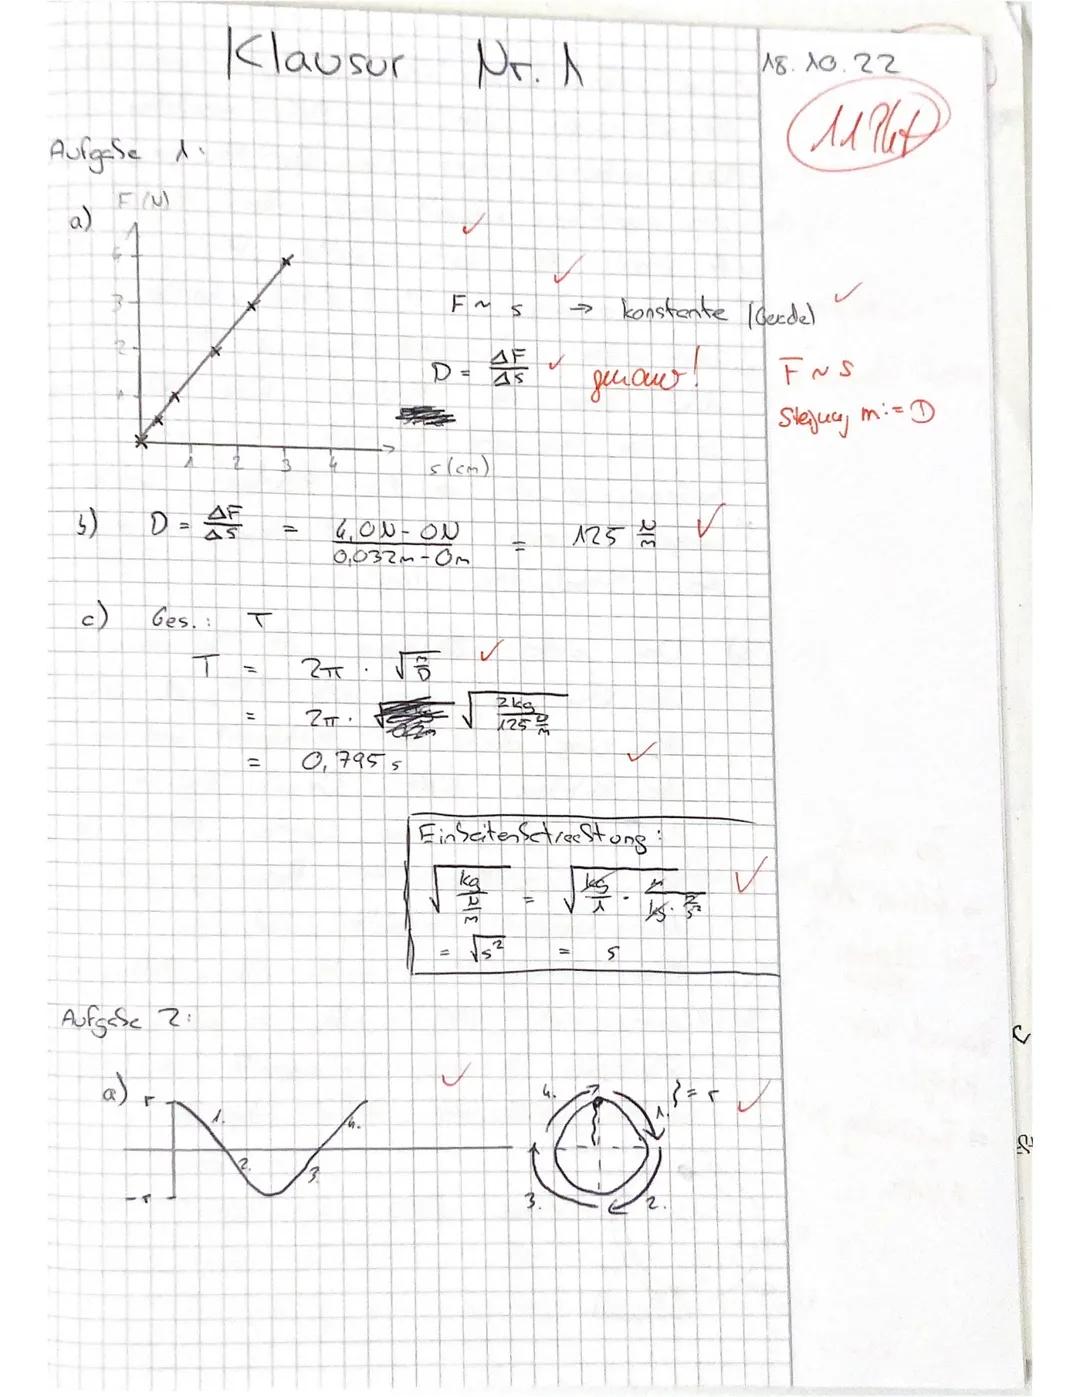 Klausur Nr. 1
18.10.22
11 Pkt
Aufgabe 1:
a)
F (N)
4
3
2
1
1 2 3 4
s (cm)
F ~ s → konstante (Gerade)
D = ΔF/Δs genauer!
F ~ s
Steigung m := D
b) D = ΔF/Δs = (4,0N - 0N)/(0,032m - 0m) = 125 N/m
c) Ges.: T
T = 2π · √(m/D)
= 2π · √(2kg/(125 N/m))
= 0,795 s
Einheitenbetrachtung:
√(kg/(N/m)) = √(kg/1 · m/(kg · m/s²))
= √s² = s
Aufgabe 2:
a)
r
-r
1.
2.
3.
4.
4.
} = r
1.
3.
2.